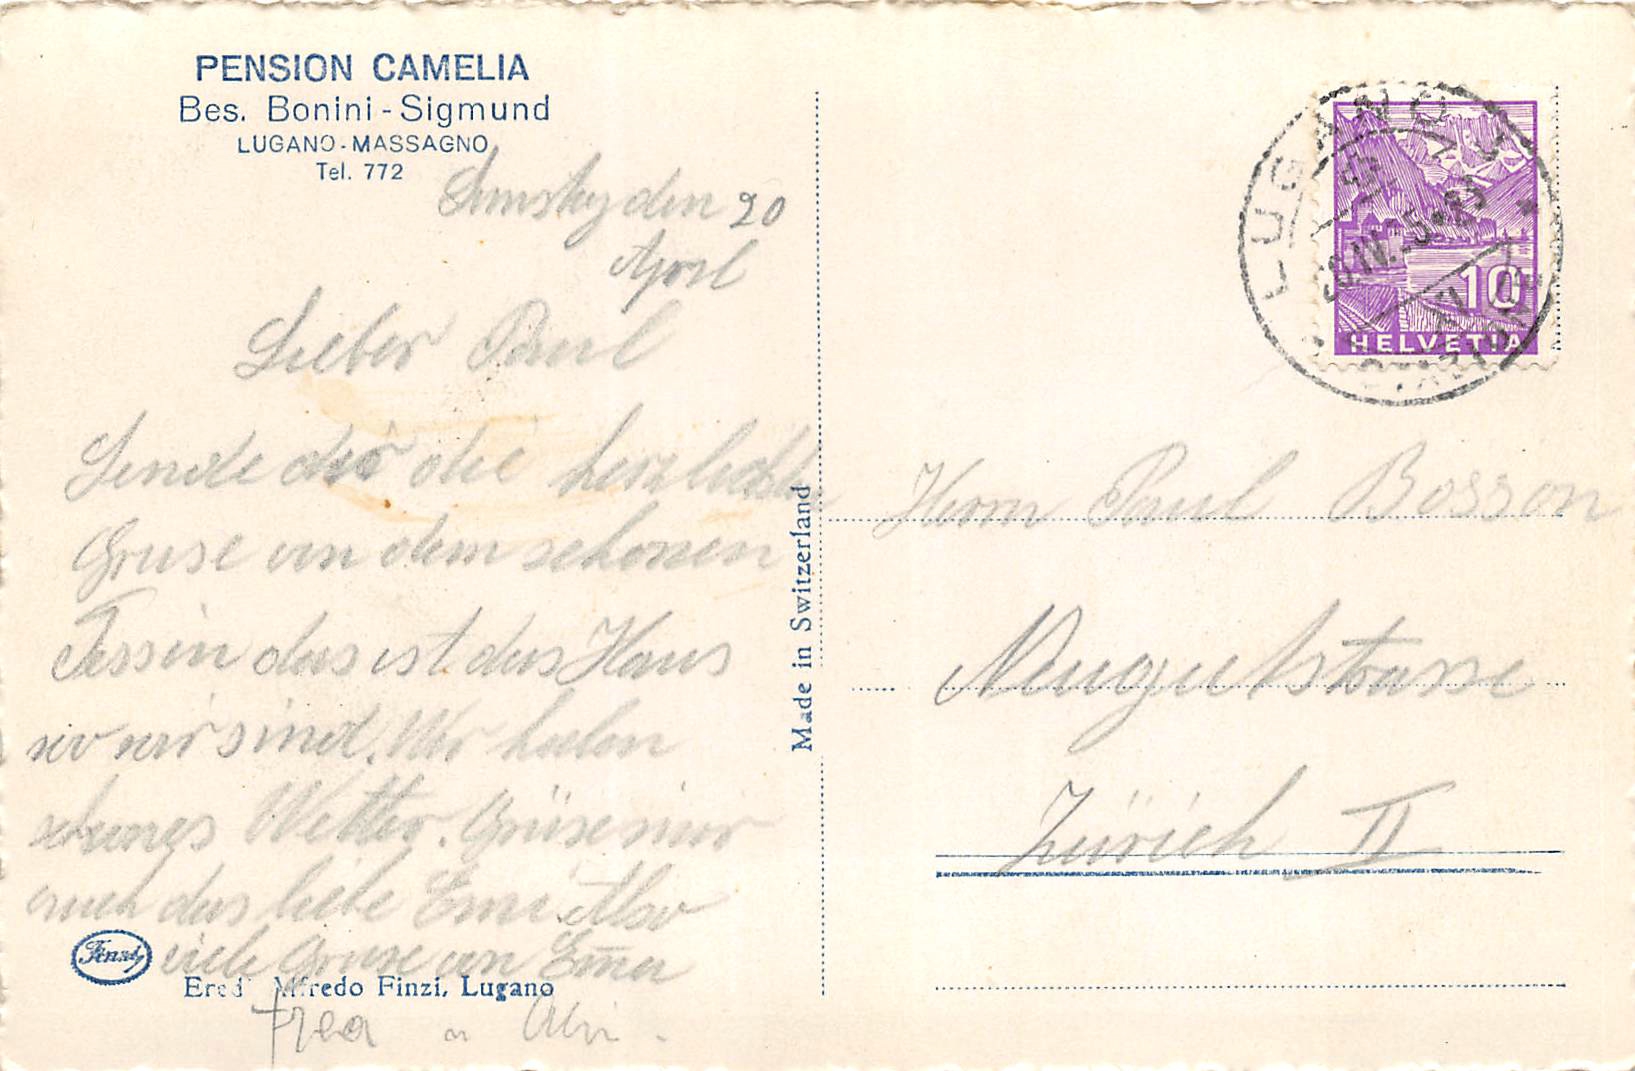 PENSION CAMELIA
Bes. Bonini - Sigmund
LUGANO - MASSAGNO
Tel. 772
Samstag den 20
April
Lieber Paul
Sende dir die herzlichsten
Grüse von dem schonen
Tessin das ist das Haus
wo wir sind. Wir haben
schones Wetter. Grüse mir
auch das liebe Emi Also
viele Grüse von Emma
Frea u Albi.
Finzi
Eredi Alfredo Finzi, Lugano
Made in Switzerland
LUGANO
10
HELVETIA
Herrn Paul Bosson
Neugutstrasse
Zürich II